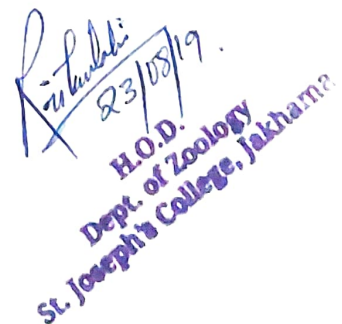 23/08/19.
H.O.D.
Dept. of Zoology
St. Joseph's College, Jakhama